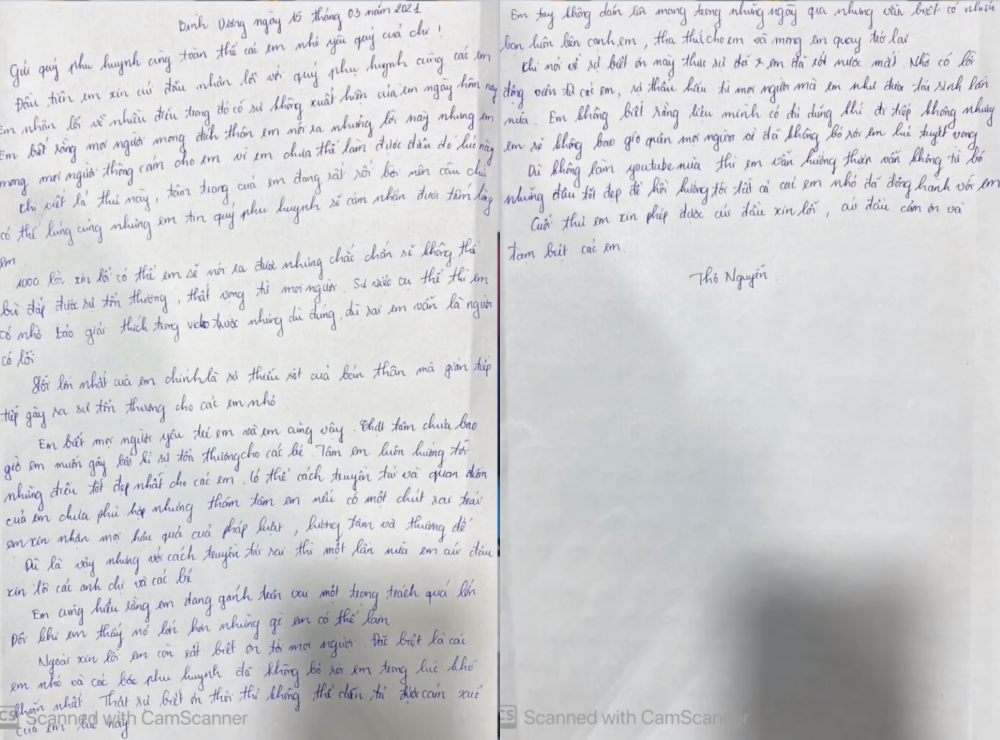 Bình Dương ngày 15 tháng 03 năm 2021
Gửi quý phụ huynh cùng toàn thể các em nhỏ yêu quý của chị!
Đầu tiên em xin cúi đầu nhận lỗi với quý phụ huynh cùng các em
Em nhận lỗi về nhiều điều trong đó có sự không xuất hiện của em ngày hôm nay
Em biết rằng mọi người mong đích thân em nói ra những lời này nhưng em
mong mọi người thông cảm cho em vì em chưa thể làm được điều đó lúc này
Khi viết lá thư này, tâm trạng của em đang rất rối bời nên câu chữ
có thể lủng củng nhưng em tin quý phụ huynh sẽ cảm nhận được tấm lòng
em
1000 lời xin lỗi có thể em sẽ nói ra được nhưng chắc chắn sẽ không thể
bù đắp được sự tổn thương, thất vọng từ mọi người. Sự việc cụ thể thì em
có nhờ báo giải thích trong video trước nhưng dù đúng, dù sai em vẫn là người
có lỗi
Lỗi lớn nhất của em chính là sự thiếu sót của bản thân mà gián tiếp
tiếp gây ra sự tổn thương cho các em nhỏ
Em biết mọi người yêu trẻ em và em cũng vậy. Thật tâm chưa bao
giờ em muốn gây bất kì sự tổn thương cho các bé. Tâm em luôn hướng tới
những điều tốt đẹp nhất cho các em. Có thể cách truyền tải và quan điểm
của em chưa phù hợp nhưng thâm tâm em nếu có một chút sai trái
em xin nhận mọi hậu quả của pháp luật, lương tâm và thượng đế
Dù là vậy nhưng với cách truyền tải sai thì một lần nữa em cúi đầu
xin lỗi các anh chị và các bé
Em cũng hiểu rằng em đang gánh trên vai một trọng trách quá lớn
Đôi khi em thấy nó lớn hơn những gì em có thể làm
Ngoài xin lỗi em còn rất biết ơn tới mọi người. Đặc biệt là các
em nhỏ và các bậc phụ huynh đã không bỏ rơi em trong lúc khó
khăn nhất. Thật sự biết ơn thôi thì không thể diễn tả được cảm xúc
của em lúc này
CS Scanned with CamScanner
Em tuy không dám lên mạng trong những ngày qua nhưng vẫn biết có nhiều
bạn luôn bên cạnh em, tha thứ cho em và mong em quay trở lại
Khi nói về sự biết ơn này thực sự đã em đã rớt nước mắt. Nhờ có lời
động viên từ các em, sự thấu hiểu từ mọi người mà em như được tái sinh lần
nữa. Em không biết rằng liệu mình có đủ dũng khí đi tiếp không nhưng
em sẽ không bao giờ quên mọi người vì đã không bỏ rơi em lúc tuyệt vọng
Dù không làm youtube nữa thì em vẫn hướng thiện vẫn không từ bỏ
những điều tốt đẹp để hồi hướng tới tất cả các em nhỏ đã đồng hành với em
Cuối thư em xin phép được cúi đầu xin lỗi, cúi đầu cảm ơn và
tạm biệt các em.
Thơ Nguyễn.
CS Scanned with CamScanner